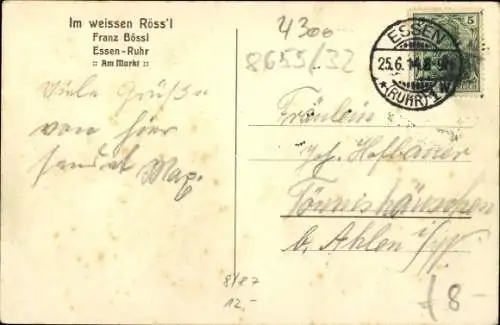 Im weissen Röss'l
Franz Bössl
Essen-Ruhr
:: Am Markt ::
4300
8655/32
ESSEN
25.6.14.8-9
*(RUHR)1
5
Viele Grüße
von hier
sendet Max.
Fräulein
Joh. Hofbauer
Tönnishäuschen
b. Ahlen i/W
8/87
12.-
8-